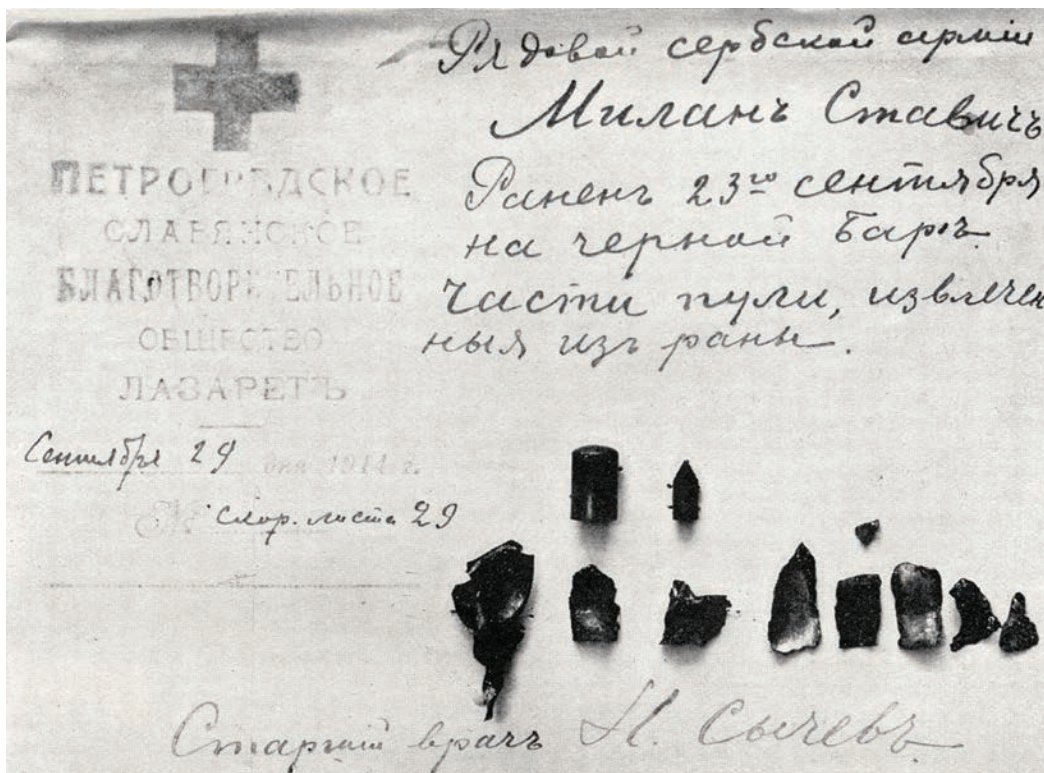 ПЕТРОГРАДСКОЕ
СЛАВЯНСКОЕ
БЛАГОТВОРИТЕЛЬНОЕ
ОБЩЕСТВО
ЛАЗАРЕТЪ
Сентября 29 дня 1914 г.
№ скор. листа 29
Рядовой сербской армiи
Миланъ Ставичъ
Раненъ 23го сентября
на черной Барѣ
части пули, извлечен
ныя изъ раны.
Старшiй врачъ Н. Сычевъ